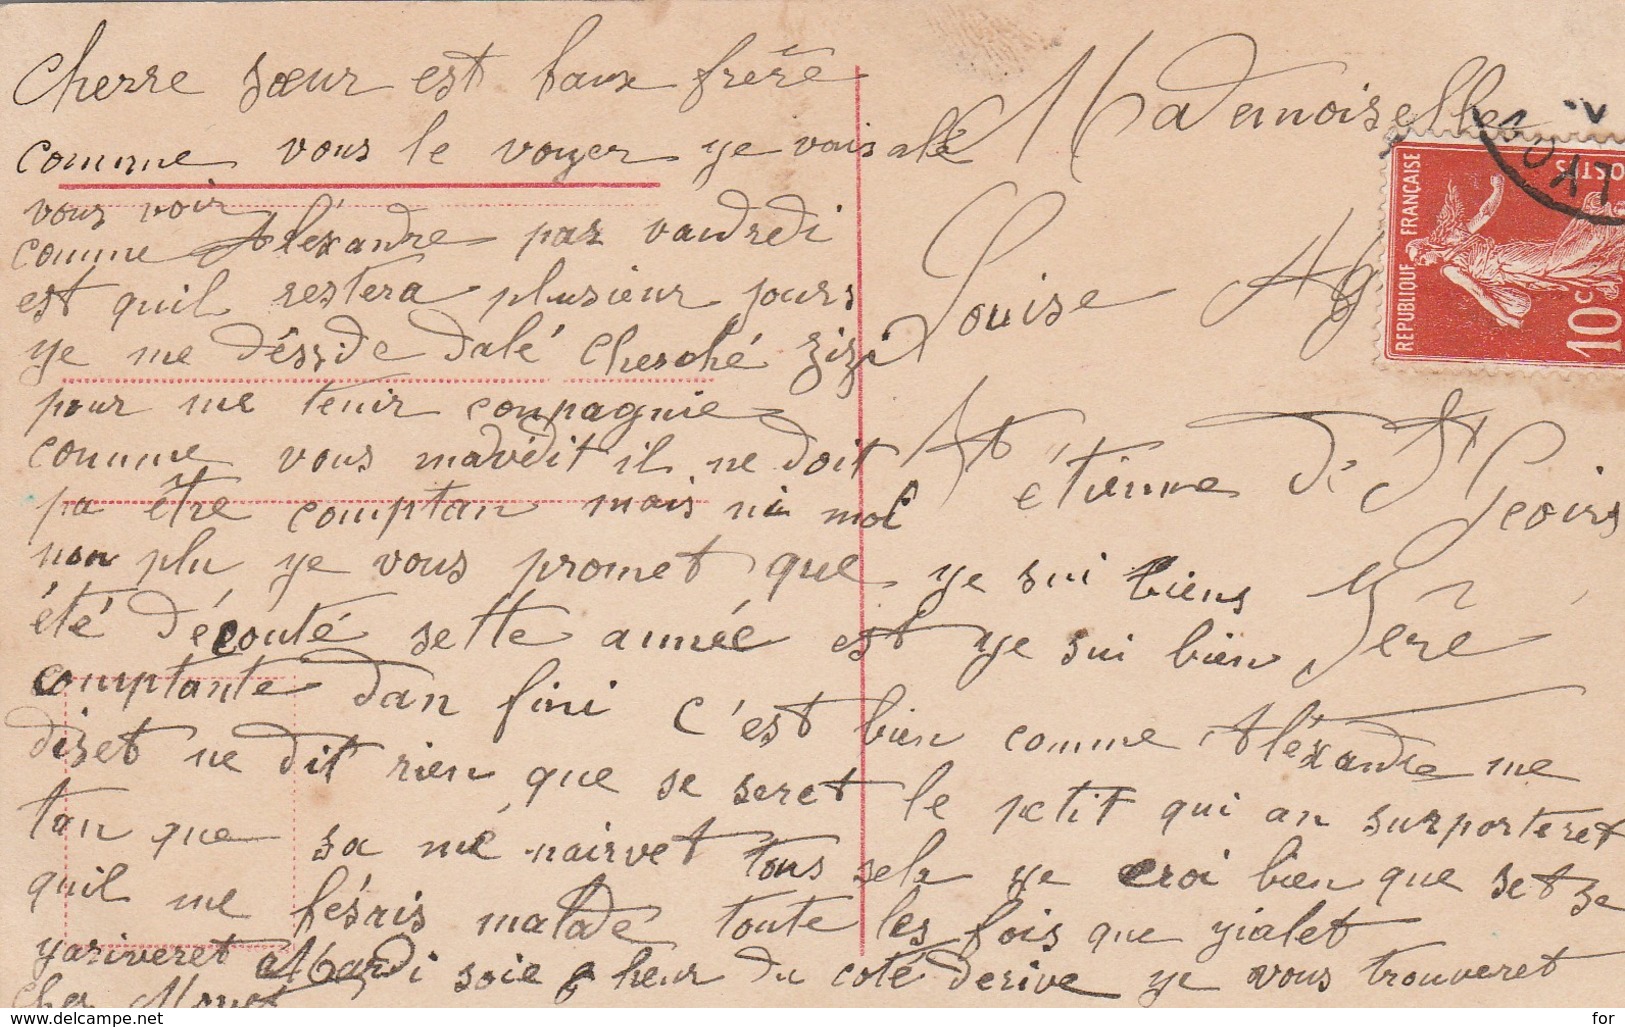 Cherre sœur est baux frére
comme vous le voyer ye vais alé
vous voir
comme Aléxandre par vandredi
est quil restera plusieur jours
ye me désside dalé cherché zizi
pour me tenir conpagnie
comme vous mavédit il ne doit
pa être comptan mais ni moi
non plu ye vous promet que ye sui biens
été décoûté sette année est ye sui bien
comptante dan fini c'est bien comme Aléxandre me
dizet ne dit rien que se seret le petit qui an surporteret
tan que sa mé nairvet tous sela ye croi bien que set ze
quil me fésais malade toute les fois que yialet
yariveret Mardi soie 6 heur du coté derive ye vous trouveret
cher
Mademoiselle
Louise
St étienne de St
Geoirs
Isere
REPUBLIQUE FRANÇAISE
POSTES
10 c
https://www.delcampe.net
for